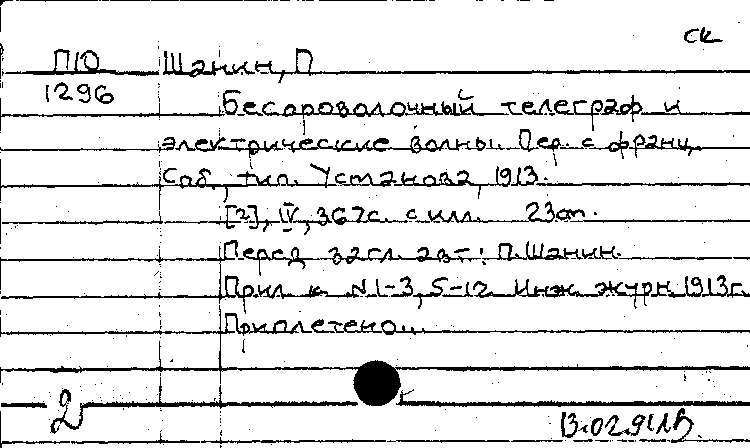 ск
П10 Шанин, П
1296
Беспроволочный телеграф и
электрические волны. Пер. с франц.
Спб., тип. Усманова, 1913.
[2], IV, 367с. с илл. 23см.
Перед загл. авт.: П. Шанин.
Прил. к №1-3, 5-12 Инж. журн. 1913г.
Приплетено...
2
13.02.91